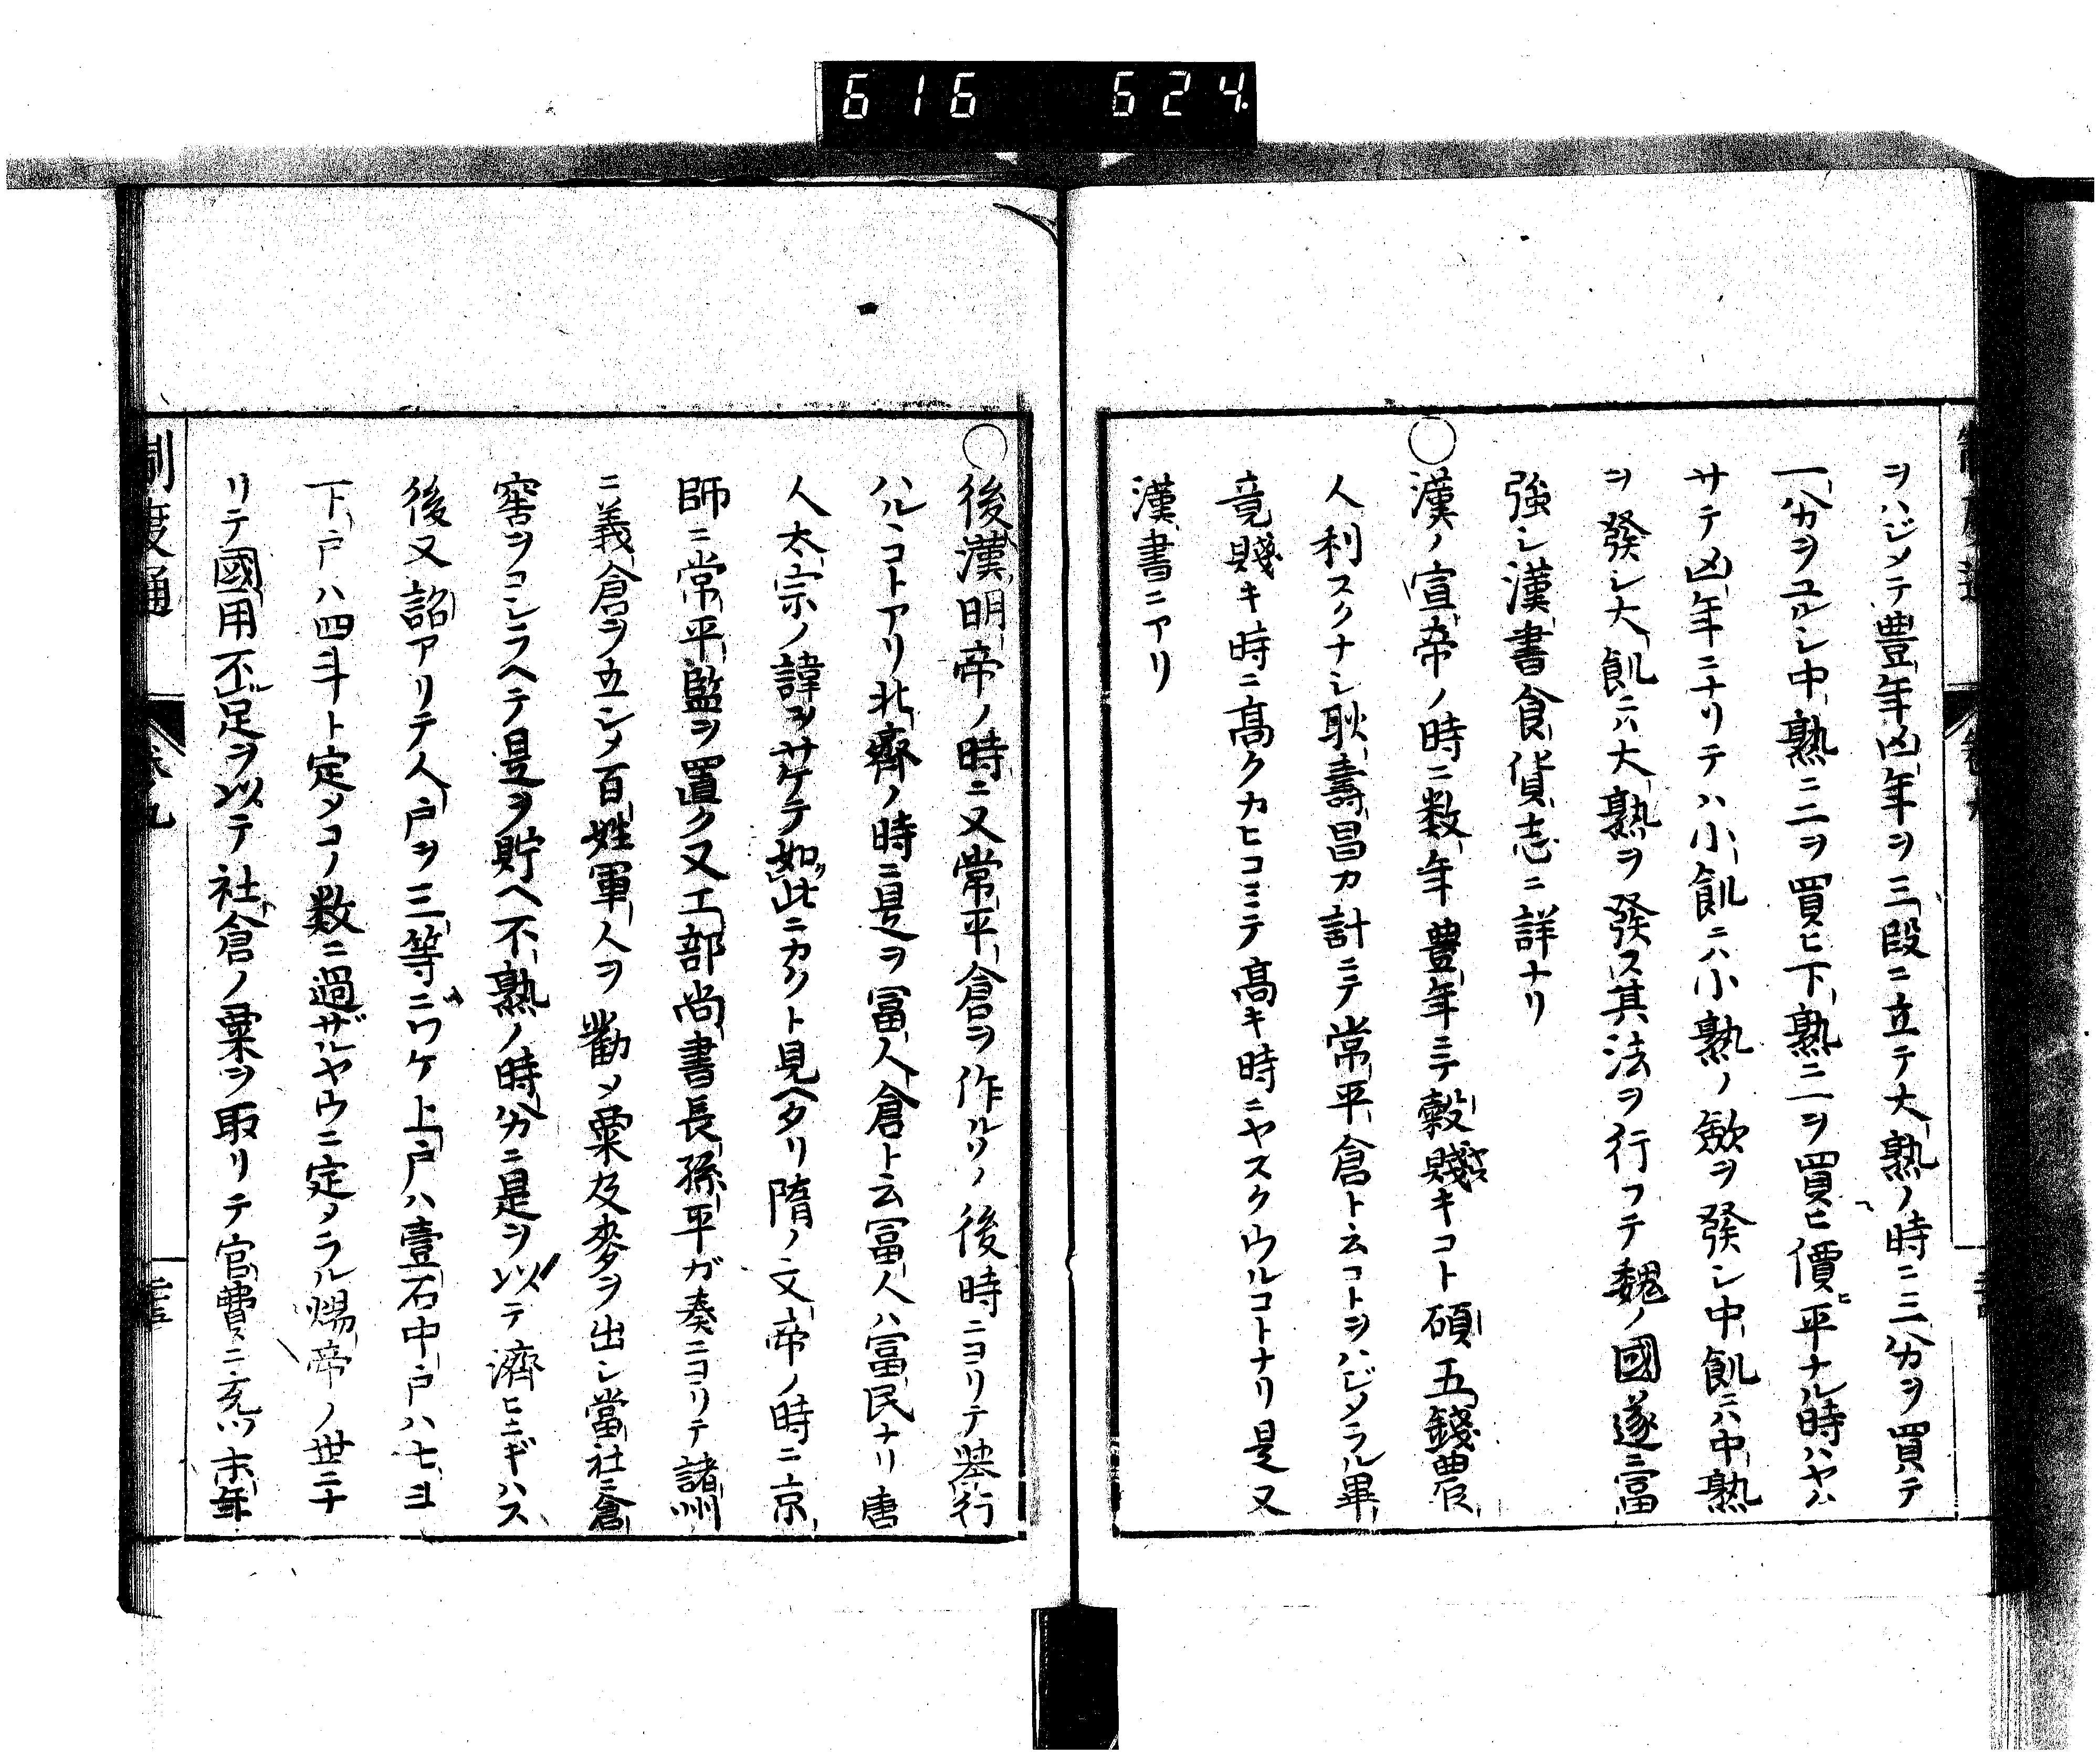 616 624
ヲハジメテ豊年凶年ヲ三段ニ立テ大熟ノ時ニ三分ヲ買テ
一分ヲユルシ中熟ニ二ヲ買ヒ下熟ニ一ヲ買ヒ價平ナル時ハヤム
サテ凶年ニナリテハ小飢ニハ小熟ノ歛ヲ發シ中飢ニハ中熟
ヲ發シ大飢ニハ大熟ヲ發ス其法ヲ行フテ魏ノ國遂ニ富
強シ漢書食貨志ニ詳ナリ
○漢ノ宣帝ノ時ニ数年豊年ニテ穀賤キコト碩五錢農
人利スクナシ耿壽昌カ計ニテ常平倉ト云コトヲハジメラル畢
竟賤キ時ニ髙クカヒコミテ髙キ時ニヤスクウルコトナリ是又
漢書ニアリ
○後漢明帝ノ時ニ又常平倉ヲ作ルソノ後時ニヨリテ挙行
ハルヽコトアリ北齊ノ時ニ是ヲ冨人倉ト云冨人ハ冨民ナリ唐
人太宗ノ諱ヲサケテ如此ニカクト見ヘタリ隋ノ文帝ノ時ニ京
師ニ常平監ヲ置ク又工部尚書長孫平ガ奏ニヨリテ諸州
ニ義倉ヲ立シメ百姓軍人ヲ勸メ粟及麥ヲ出シ當社ニ倉
窖ヲコシラヘテ是ヲ貯ヘ不熟ノ時分ニ是ヲ以テ濟ヒニギハス
後又詔アリテ人戸ヲ三等ニワケ上戸ハ壹石中戸ハ七斗
下戸ハ四斗ト定メコノ数ニ過ザルヤウニ定メラル煬帝ノ世ニナ
リテ國用不足ヲ以テ社倉ノ粟ヲ取リテ官費ニ充ツ末年
制度通 卷九